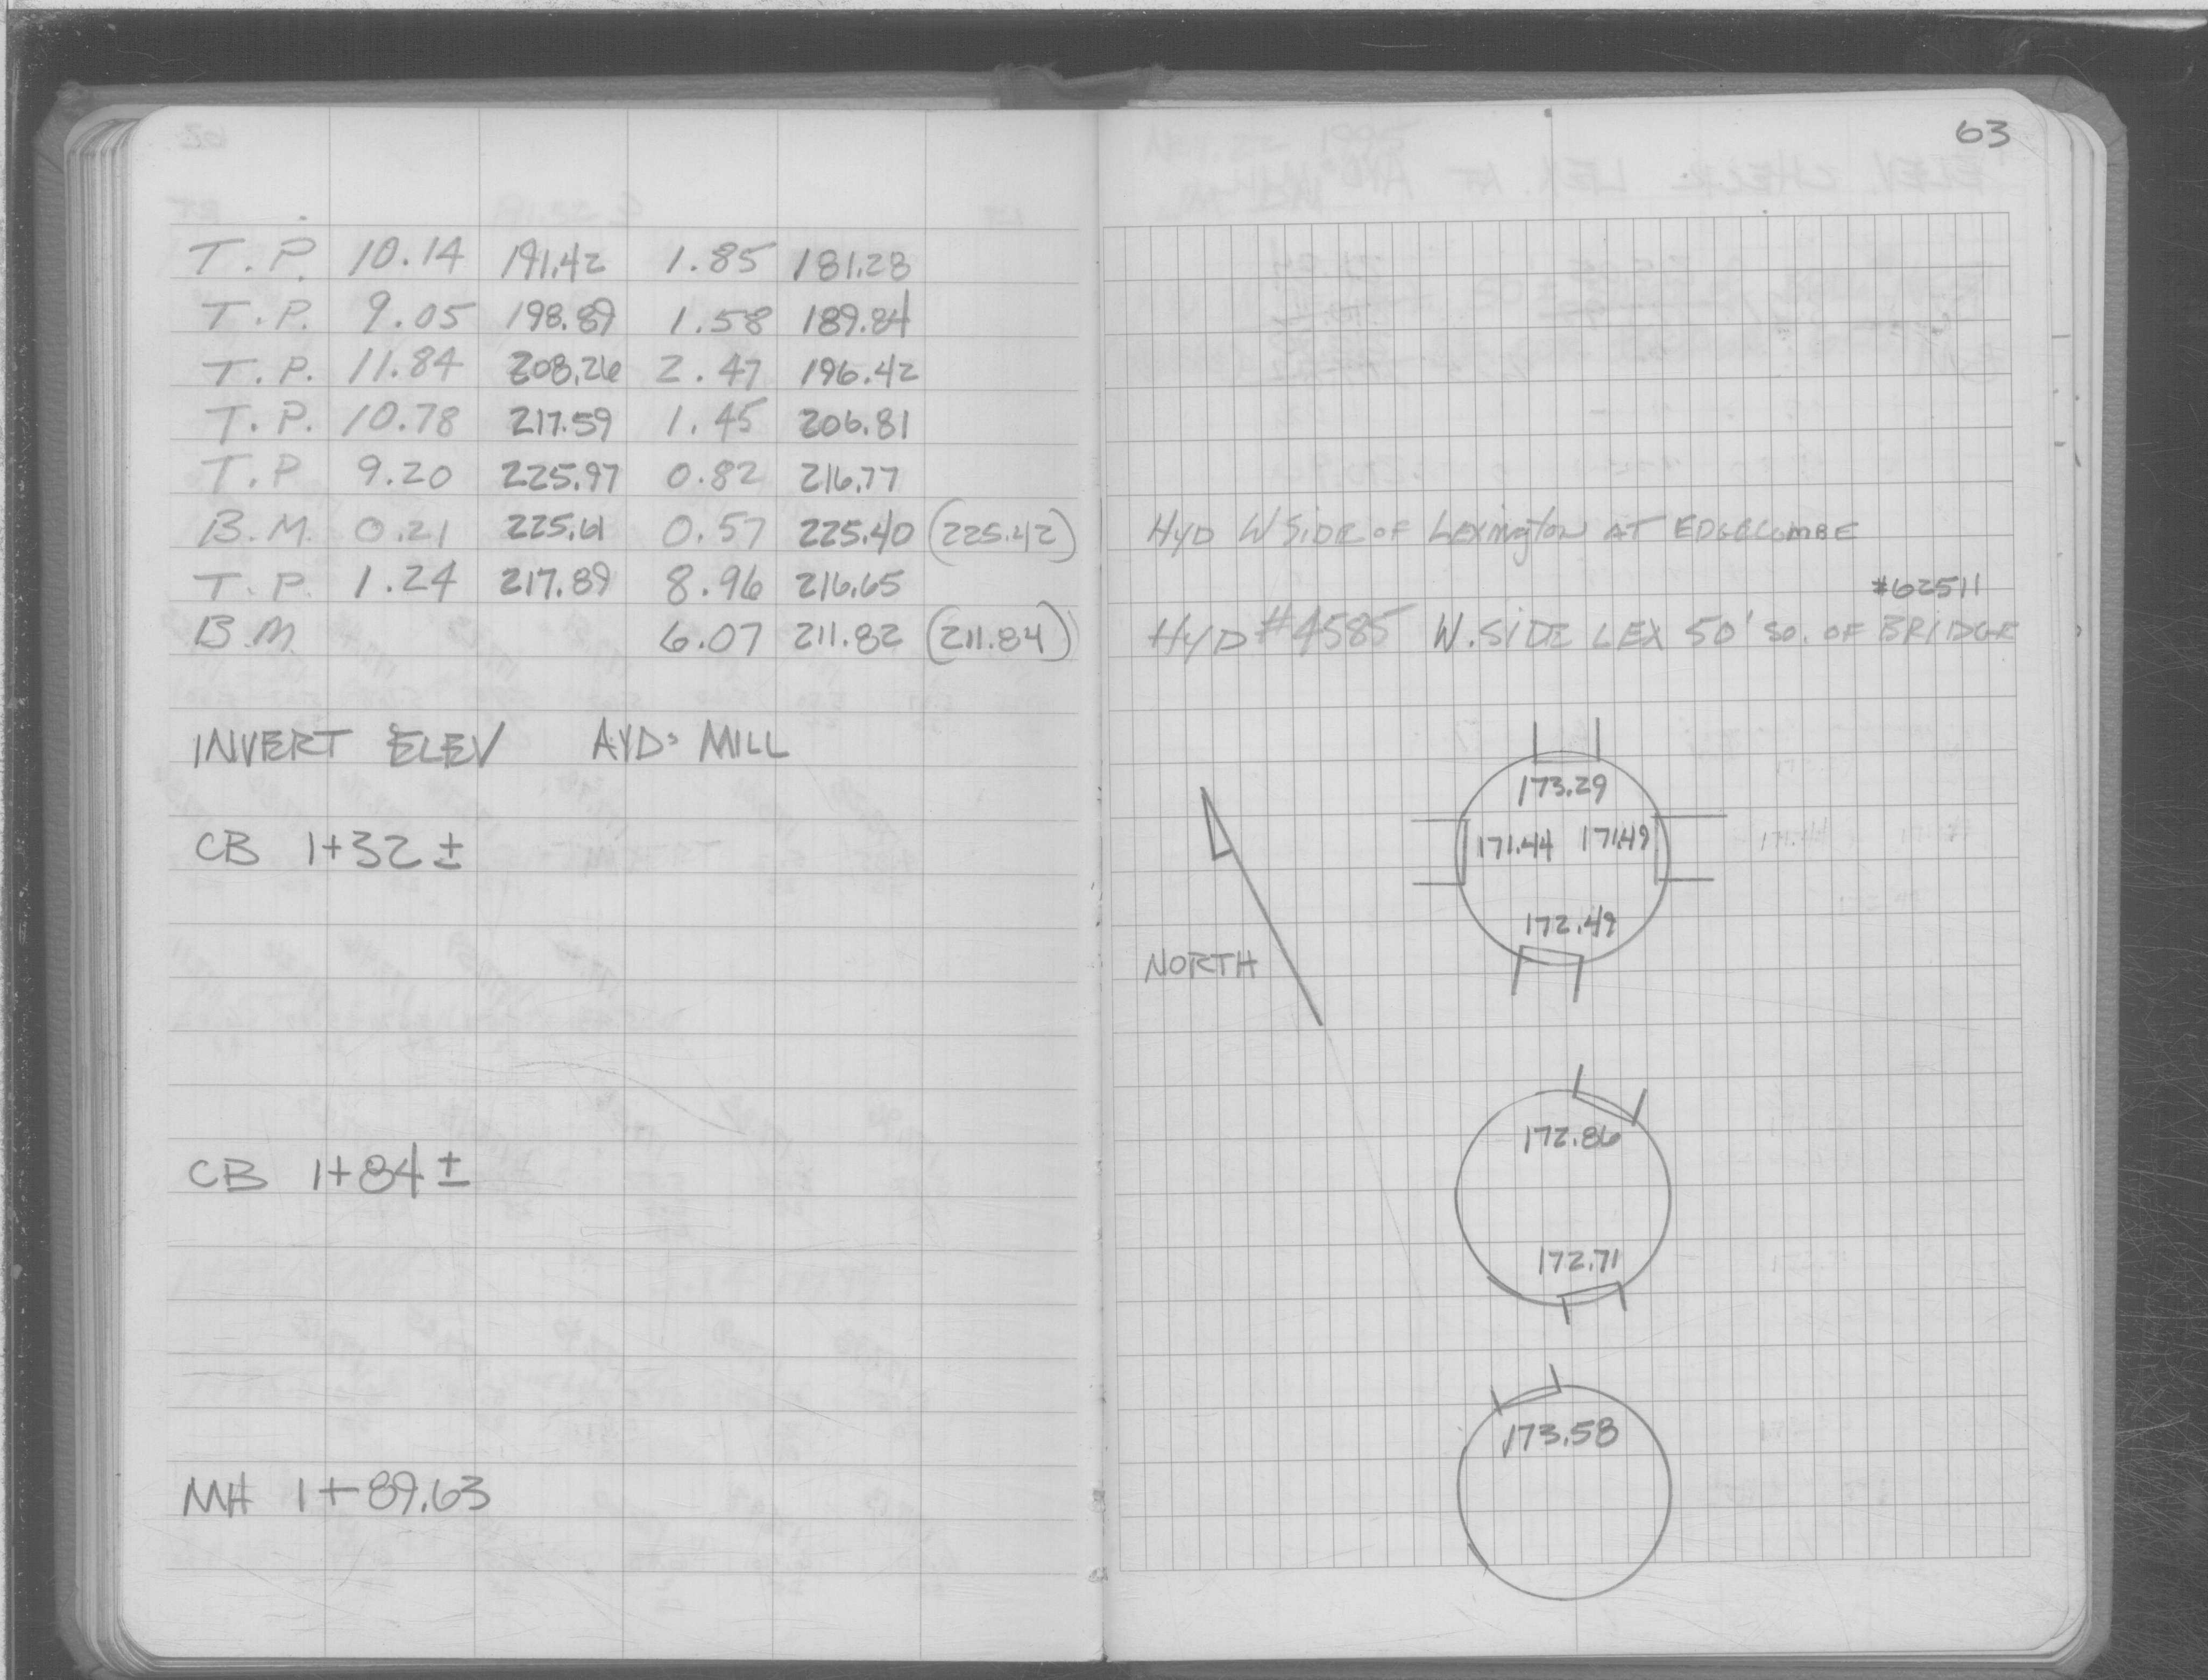 63
T.P. 10.14 191.42 1.85 181.28
T.P. 9.05 198.89 1.58 189.84
T.P. 11.84 208.26 2.47 196.42
T.P. 10.78 217.59 1.45 206.81
T.P 9.20 225.97 0.82 216.77
B.M. 0.21 225.61 0.57 225.40 (225.42) HYD W SIDE OF LEXINGTON AT EDGECOMBE
T.P. 1.24 217.89 8.96 216.65 #62511
B.M. 6.07 211.82 (211.84) HYD #4585 W. SIDE LEX 50' SO. OF BRIDGE
INVERT ELEV AYD. MILL
CB 1+32 ±
173.29
171.44 171.49
172.49
NORTH
CB 1+84 ±
172.86
172.71
MH 1+89.63
173.58